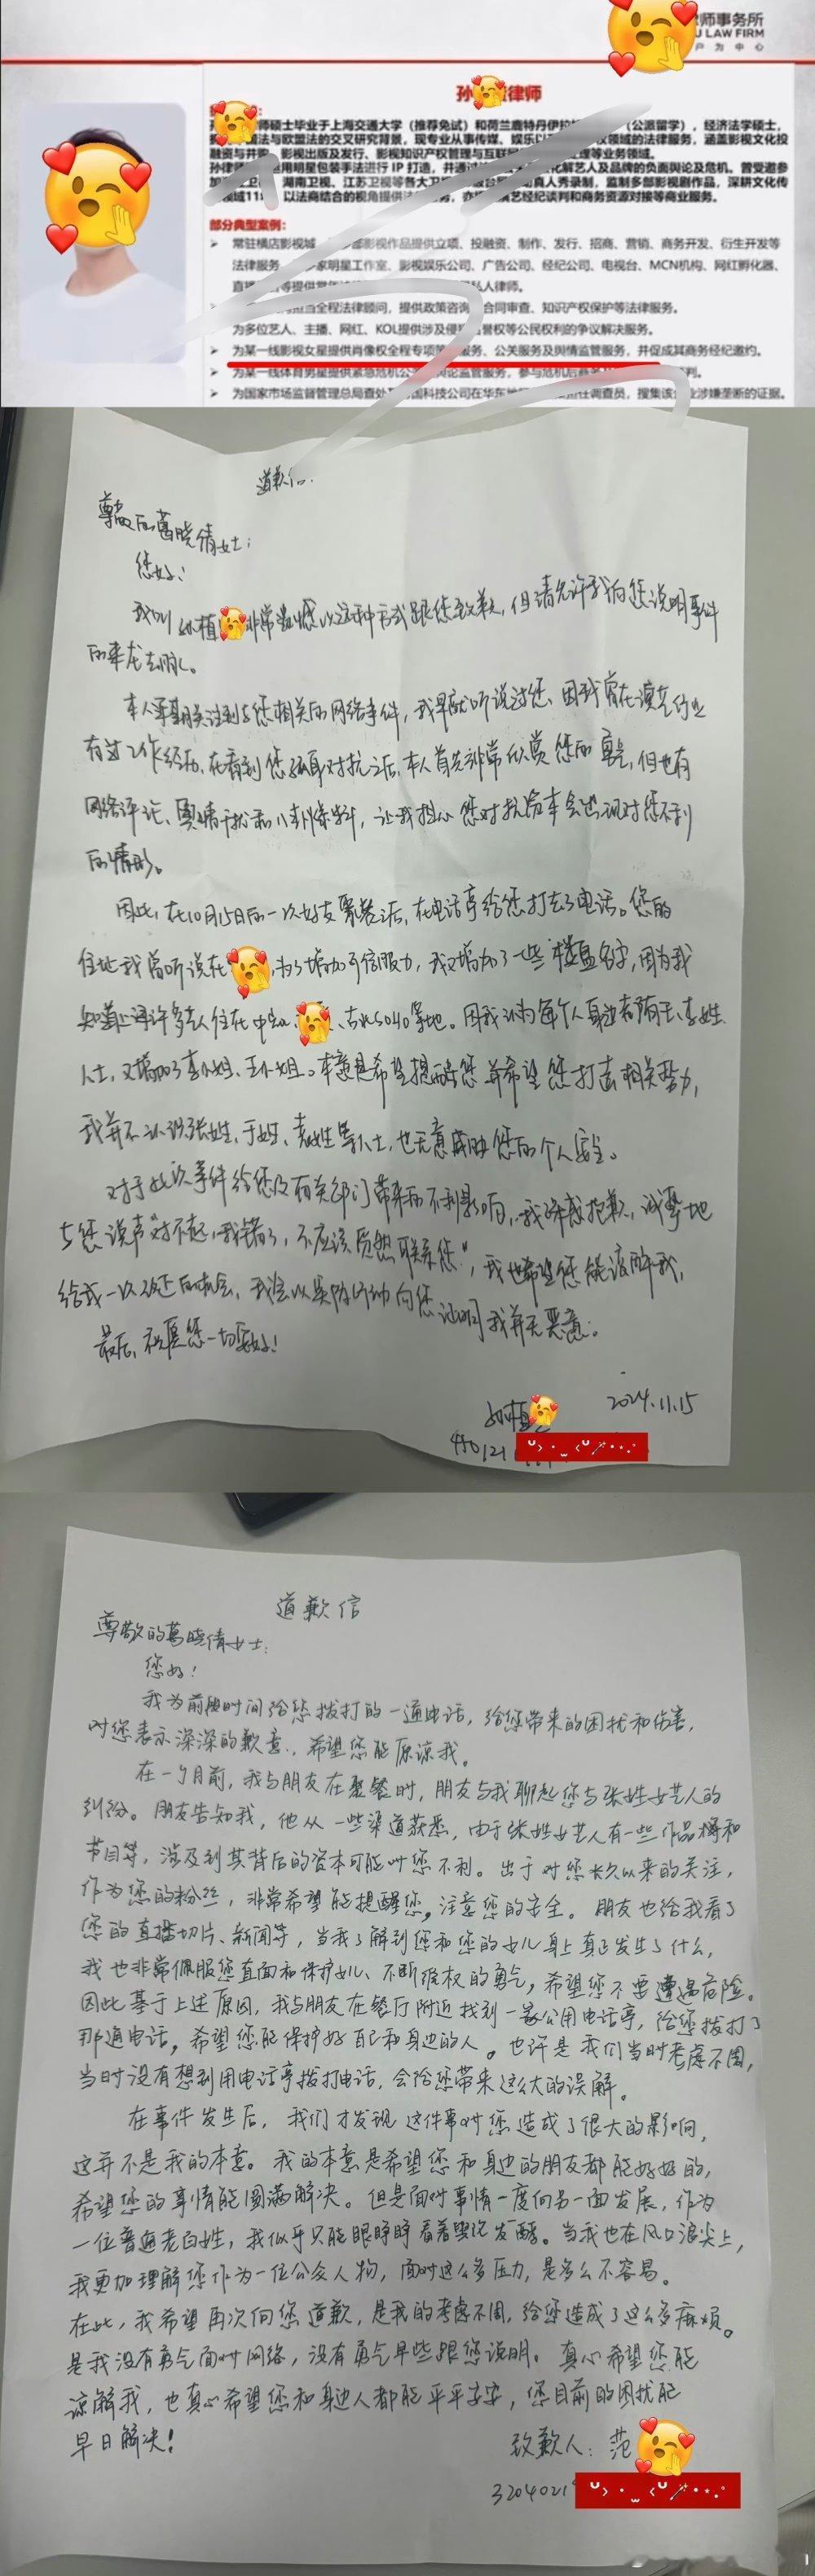 律师事务所
U LAW FIRM
户 为 中 心
孙 律师
师硕士毕业于上海交通大学（推荐免试）和荷兰鹿特丹伊拉 （公派留学），经济法学硕士，
法与欧盟法的交叉研究背景，现专业从事传媒、娱乐以 权领域的法律服务，涵盖影视文化投
融资与并购、影视出版及发行、影视知识产权管理与互联网 理等业务领域。
孙律师 用明星包装手法进行 IP 打造，并通过 化解艺人及品牌的负面舆论及危机。曾受邀参
加 卫 、湖南卫视、江苏卫视等各大卫 真人秀录制，监制多部影视剧作品，深耕文化传
领域11 以法商结合的视角提供法 务，亦 艺经纪谈判和商务资源对接等商业服务。
部分典型案例：
常驻横店影视城， 部影视作品提供立项、投融资、制作、发行、招商、营销、商务开发、衍生开发等
法律服务 家明星工作室、影视娱乐公司、广告公司、经纪公司、电视台、MCN机构、网红孵化器、
直 等提供常年 私人律师。
担当全程法律顾问，提供政策咨询 合同审查、知识产权保护等法律服务。
为多位艺人、主播、网红、KOL提供涉及侵 誉权等公民权利的争议解决服务。
为某一线影视女星提供肖像权全程专项 服务、公关服务及舆情监管服务，并促成其商务经纪邀约。
为某一线体育男星提供紧急危机公 舆论监管服务，参与危机后商务 判。
为国家市场监督管理总局查处 国科技公司在华东地 担任调查员，搜集该 业涉嫌垄断的证据。
道歉信
尊敬的葛晓倩女士：
您好！
我叫孙植 非常遗憾以这种方式跟您致歉，但请允许我向您说明事件
的来龙去脉。
本人早期关注到与您相关的网络事件，我早就听说过您，因我曾在演艺行业
有过工作经历，在看到您孤身对抗之后，本人首先非常欣赏您的勇气，但也有
网络评论、舆情干扰和八卦爆料，让我担心您对抗资本会出现对您不利
的情形。
因此，在10月15日的一次好友聚餐后，在电话亭给您打去了电话。您的
住址我曾听说在 ，为了增加可信服力，我又增加了一些楼盘名字，因为我
知道上海许多艺人住在中 、古北SOHO等地。因我认为每个人身边都有王、李姓
人士，又增加了李小姐、王小姐。本意是希望提醒您并希望您打击相关势力，
我并不认识张姓、于姓、袁姓等人士，也无意威胁您的个人安全。
对于此次事件给您及有关部门带来的不利影响，我深感抱歉，诚挚地
与您说声“对不起，我错了，不应该贸然联系您”，我也希望您能谅解我，
给我一次改正的机会，我会以实际行动向您证明我并无恶意。
最后，祝愿您一切安好！
孙植 2024.11.15
440121
道歉信
尊敬的葛晓倩女士：
您好！
我为前段时间给您拨打的一通电话，给您带来的困扰和伤害，
对您表示深深的歉意，希望您能原谅我。
在一个月前，我与朋友在聚餐时，朋友与我聊起您与张姓女艺人的
纠纷。朋友告知我，他从一些渠道获悉，由于张姓女艺人有一些作品和
节目等，涉及到其背后的资本可能对您不利。出于对您长久以来的关注，
作为您的粉丝，非常希望能提醒您，注意您的安全。朋友也给我看了
您的直播切片、新闻等，当我了解到您和您的女儿身上真正发生了什么，
我也非常佩服您直面和保护女儿、不断维权的勇气，希望您不要遭遇危险。
因此基于上述原因，我与朋友在餐厅附近找到一家公用电话亭，给您拨打了
那通电话，希望您能保护好自己和身边的人。也许是我们当时考虑不周，
当时没有想到用电话亭拨打电话，会给您带来这么大的误解。
在事件发生后，我们才发现这件事对您造成了很大的影响，
这并不是我的本意。我的本意是希望您和身边的朋友都能好好的，
希望您的事情能圆满解决。但是面对事情一度向另一面发展，作为
一位普通老百姓，我似乎只能眼睁睁看着舆论发酵。当我也在风口浪尖上，
我更加理解您作为一位公众人物，面对这么多压力，是多么不容易。
在此，我希望再次向您道歉，是我的考虑不周，给您造成了这么多麻烦。
是我没有勇气面对网络，没有勇气早些跟您说明。真心希望您能
谅解我，也真心希望您和身边人都能平平安安，您目前的困扰能
早日解决！
致歉人：范
3204021